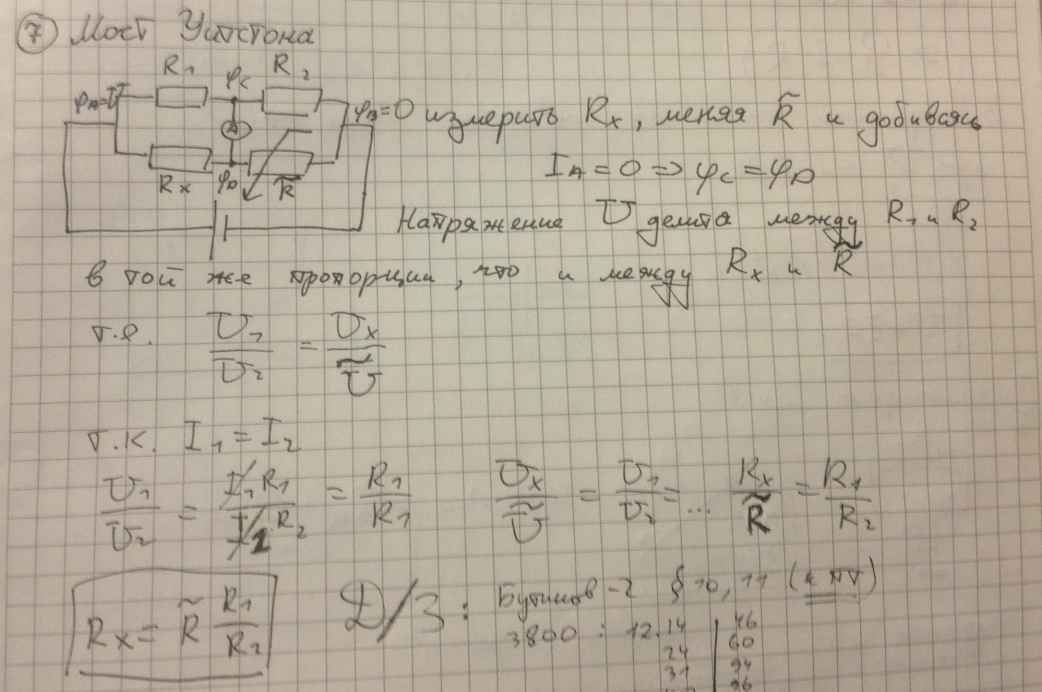 7 Мост Уитстона
R1 φC R2
φA=U φB=0 измерить Rx, меняя R̃ и добиваясь
A
IA = 0 => φC = φD
Rx φD R̃
Напряжение U делится между R1 и R2
в той же пропорции, что и между Rx и R̃
т.е. U1/U2 = Ux/Ũ
т.к. I1 = I2
U1/U2 = I1R1/I2R2 = R1/R1 Ux/Ũ = U1/U2 = ... Rx/R̃ = R1/R2
Rx = R̃ R1/R2
Д/З: Бутиков-2 § 10, 11 (к пт)
3800: 12.14 46
24 60
31 94
96